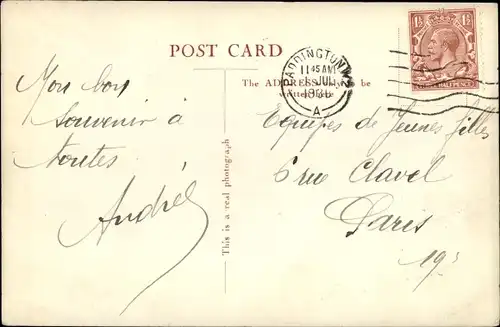 POST CARD
1½ 1½
PADDINGTON W.2
11 45 AM
JUL
A
The ADDRESS only to be
written here
Mon bon
Souvenir à
Toutes
Andrée
This is a real photograph
Equipes de Jeunes filles
6 rue Clavel
Paris
19ᵉ